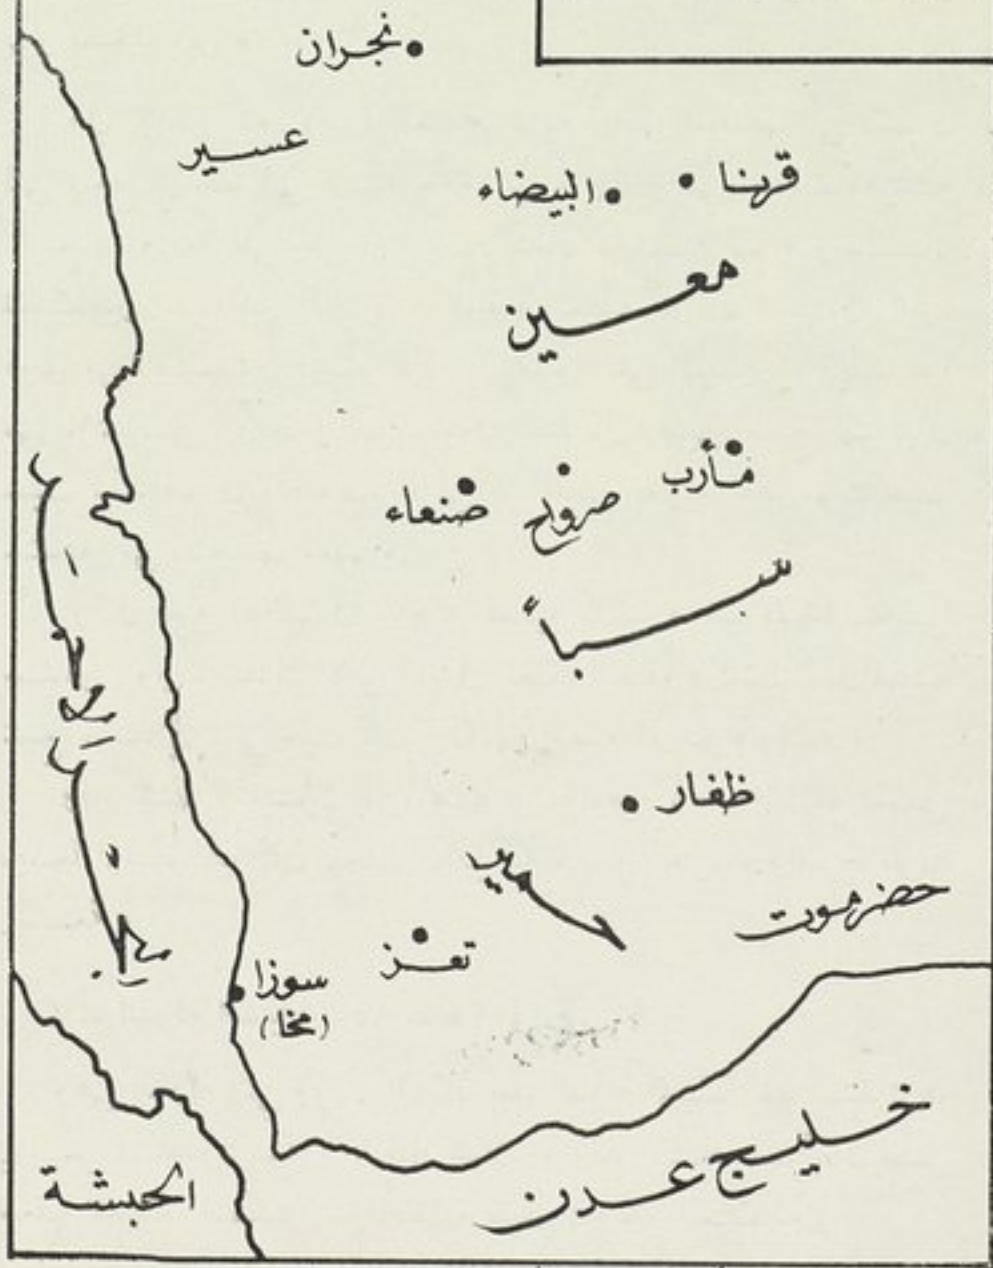 نجران
عسير
قرنا
البيضاء
معين
مأرب
صرواح
صنعاء
سبأ
البحر الأحمر
ظفار
حمير
حضرموت
تعز
سوزا
(مخا)
خليج عدن
الحبشة